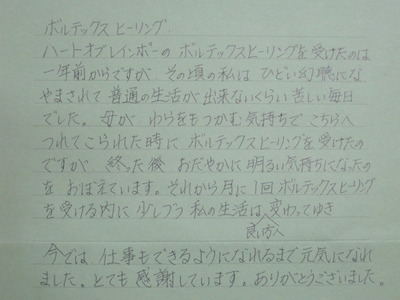 ボルテックス ヒーリング
ハートオブレインボーの ボルテックスヒーリングを受けたのは
一年前からですが その頃の私は ひどい幻聴にな
やまされて 普通の生活が出来ないくらい苦しい毎日
でした。母が わらをもつかむ気持ちで こちらへ
つれてこられた時に ボルテックスヒーリングを受けたの
ですが 終った後 おだやかに明るい気持ちになったの
を おぼえています。それから月に1回ボルテックスヒーリング
を受ける内に 少しづつ 私の生活は 変わってゆき
良い方へ
今では 仕事もできるようになれるまで元気になれ
ました。とても 感謝しています。ありがとうございました。